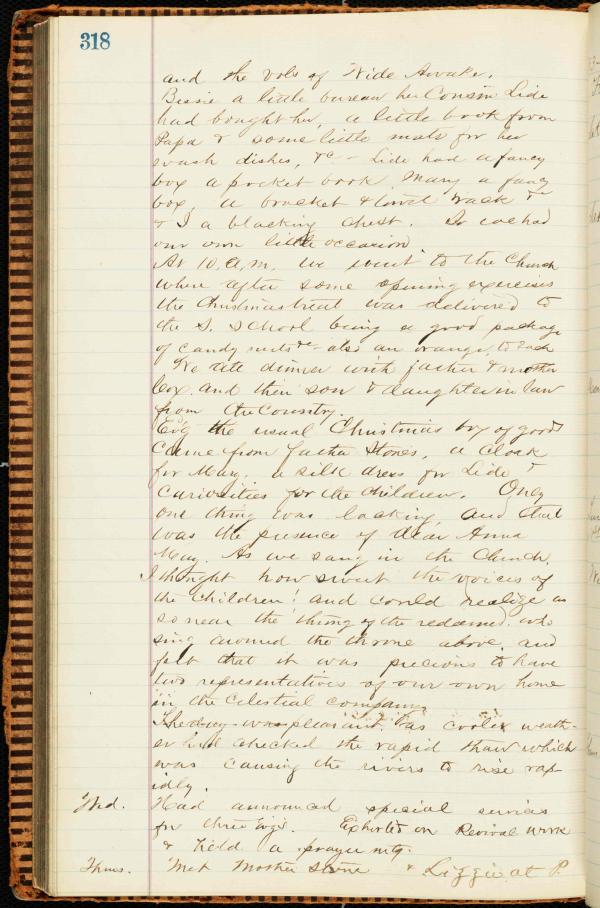 318
and the vols of Wide Awake.
Bessie a little bureau her Cousin Lide
had bought her, a little book from
Papa & some little mats for her
wash dishes, &c - Lide had a fancy
box a pocket book, Mary a fancy
box, a bracket & towel rack &c
& I a blacking chest. So we had
our own little occasion
At 10, a,m, we went to the Church
where after some opening exercises
the Christmas treat was delivered to
the S. School being a good package
of candy nuts &c - also an orange, to each
We ate dinner with father & mother
Cox and their son & daughter in law
from the Country.
Ev'g the usual Christmas box of goods
came from father Stones, a clock
for Mary, a silk dress for Lide &
curiosities for the children. Only
one thing was lacking, and that
was the presence of dear Anna
May. As we sang in the Church,
I thought how sweet the voices of
the children! and could realize in
so near the throng of the redeemed, who
sing around the throne above, and
felt that it was precious to have
two representatives of our own home
in the celestial company
The day was pleasant, as cooler weath-
er had checked the rapid thaw which
was causing the rivers to rise rap-
idly.
Wed. Had announced special services
for three Evgs. Exhorted on Revival work
& held a prayer mtg.
Thurs. Met Mother Stone & Lizzie at P.